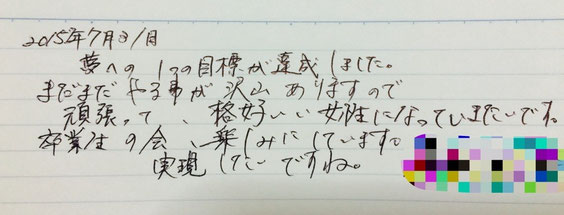 2015年7月31日
夢への1つの目標が達成しました。
まだまだやる事が沢山ありますので
頑張って、格好いい女性になっていきたいです。
卒業生の会、楽しみにしています。
実現したいですね。